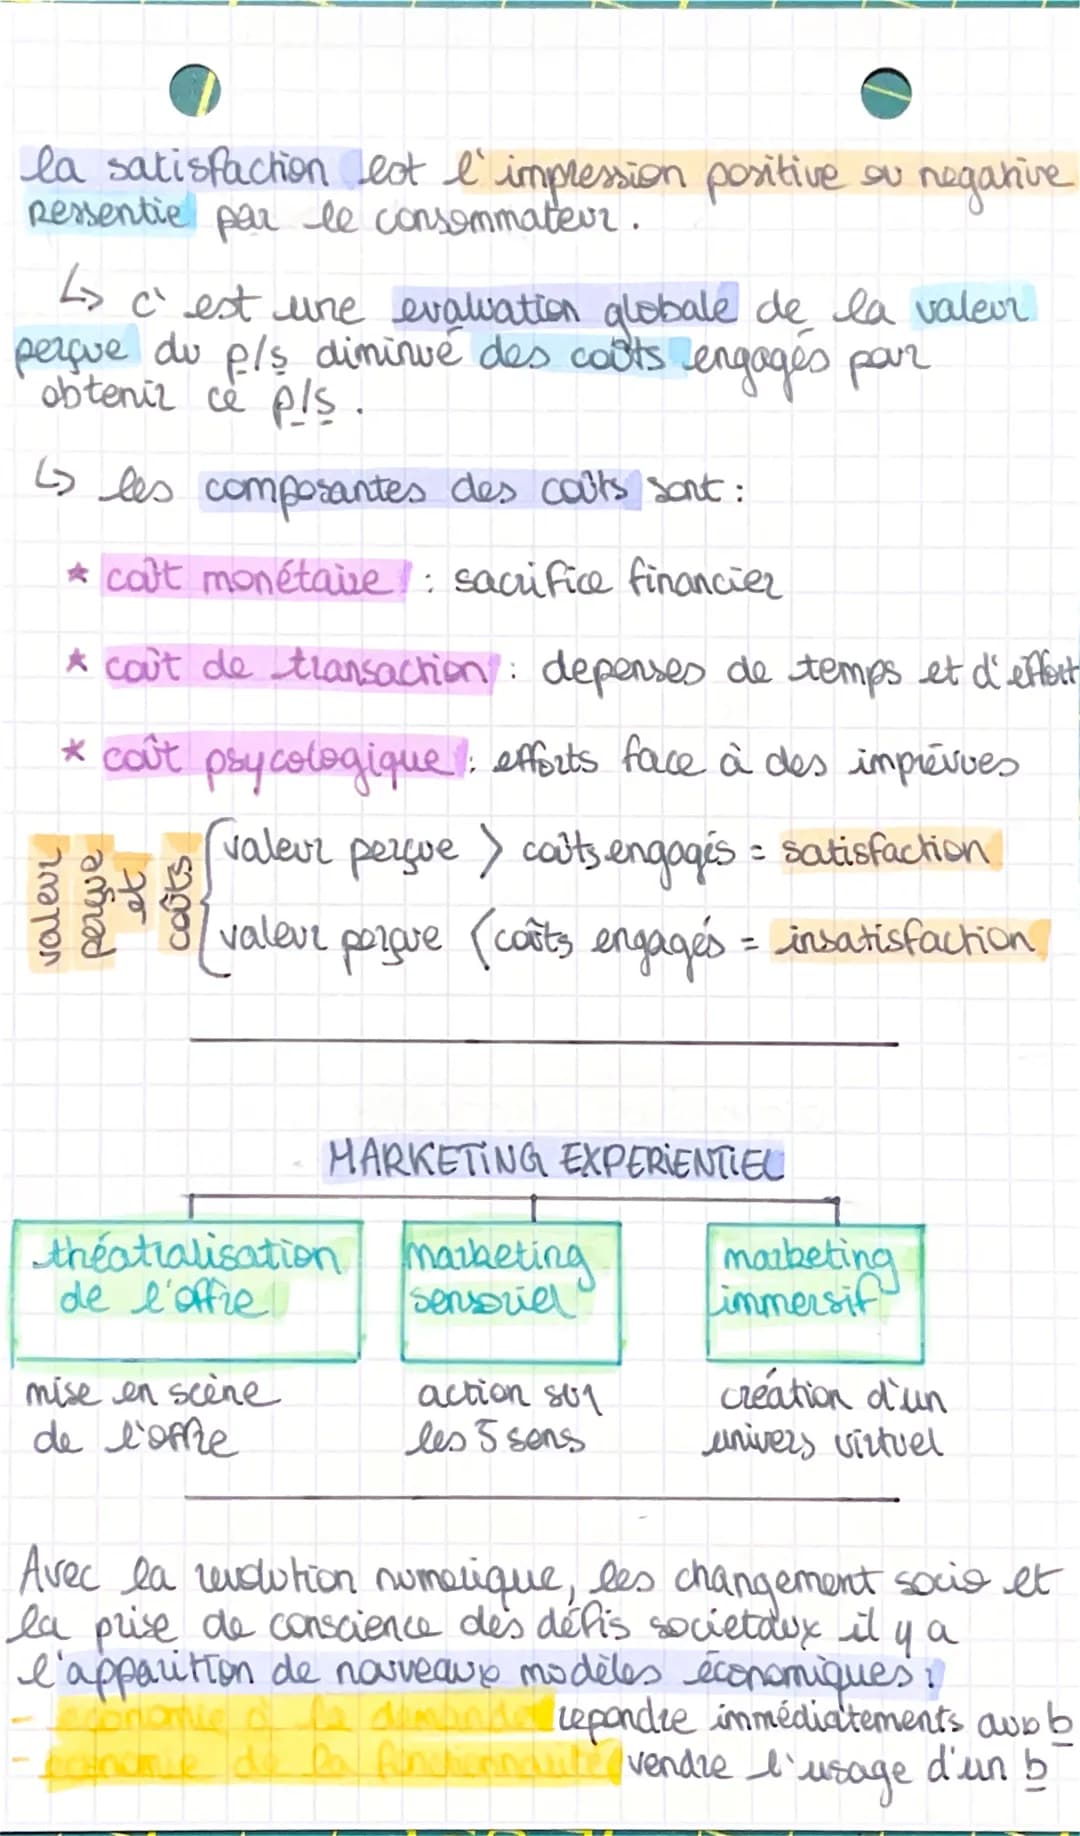 la satisfaction est l'impression positive ou negative
ressentie par le consommateur.
↳ c'est une evaluation globale de la valeur
perçue du p/s diminué des coûts engagés par
obtenir ce p/s.
↳ les composantes des coûts sont :
* coût monétaire : sacrifice financier
* coût de transaction : depenses de temps et d'effort
* coût psycologique : efforts face à des imprévues
valeur perçue et coûts
valeur perçue > coûts engagés = satisfaction
valeur perçue < coûts engagés = insatisfaction
MARKETING EXPERIENTIEL
théatralisation marketing marketing
de l'offre sensoriel immersif
mise en scène action sur création d'un
de l'offre les 5 sens univers virtuel
Avec la revolution numerique, les changement socio et
la prise de conscience des défis societaux il y a
l'apparition de nouveaux modèles économiques :
- economie à la demande repondre immédiatements aux b
- economie de la fonctionnalité vendre l'usage d'un b